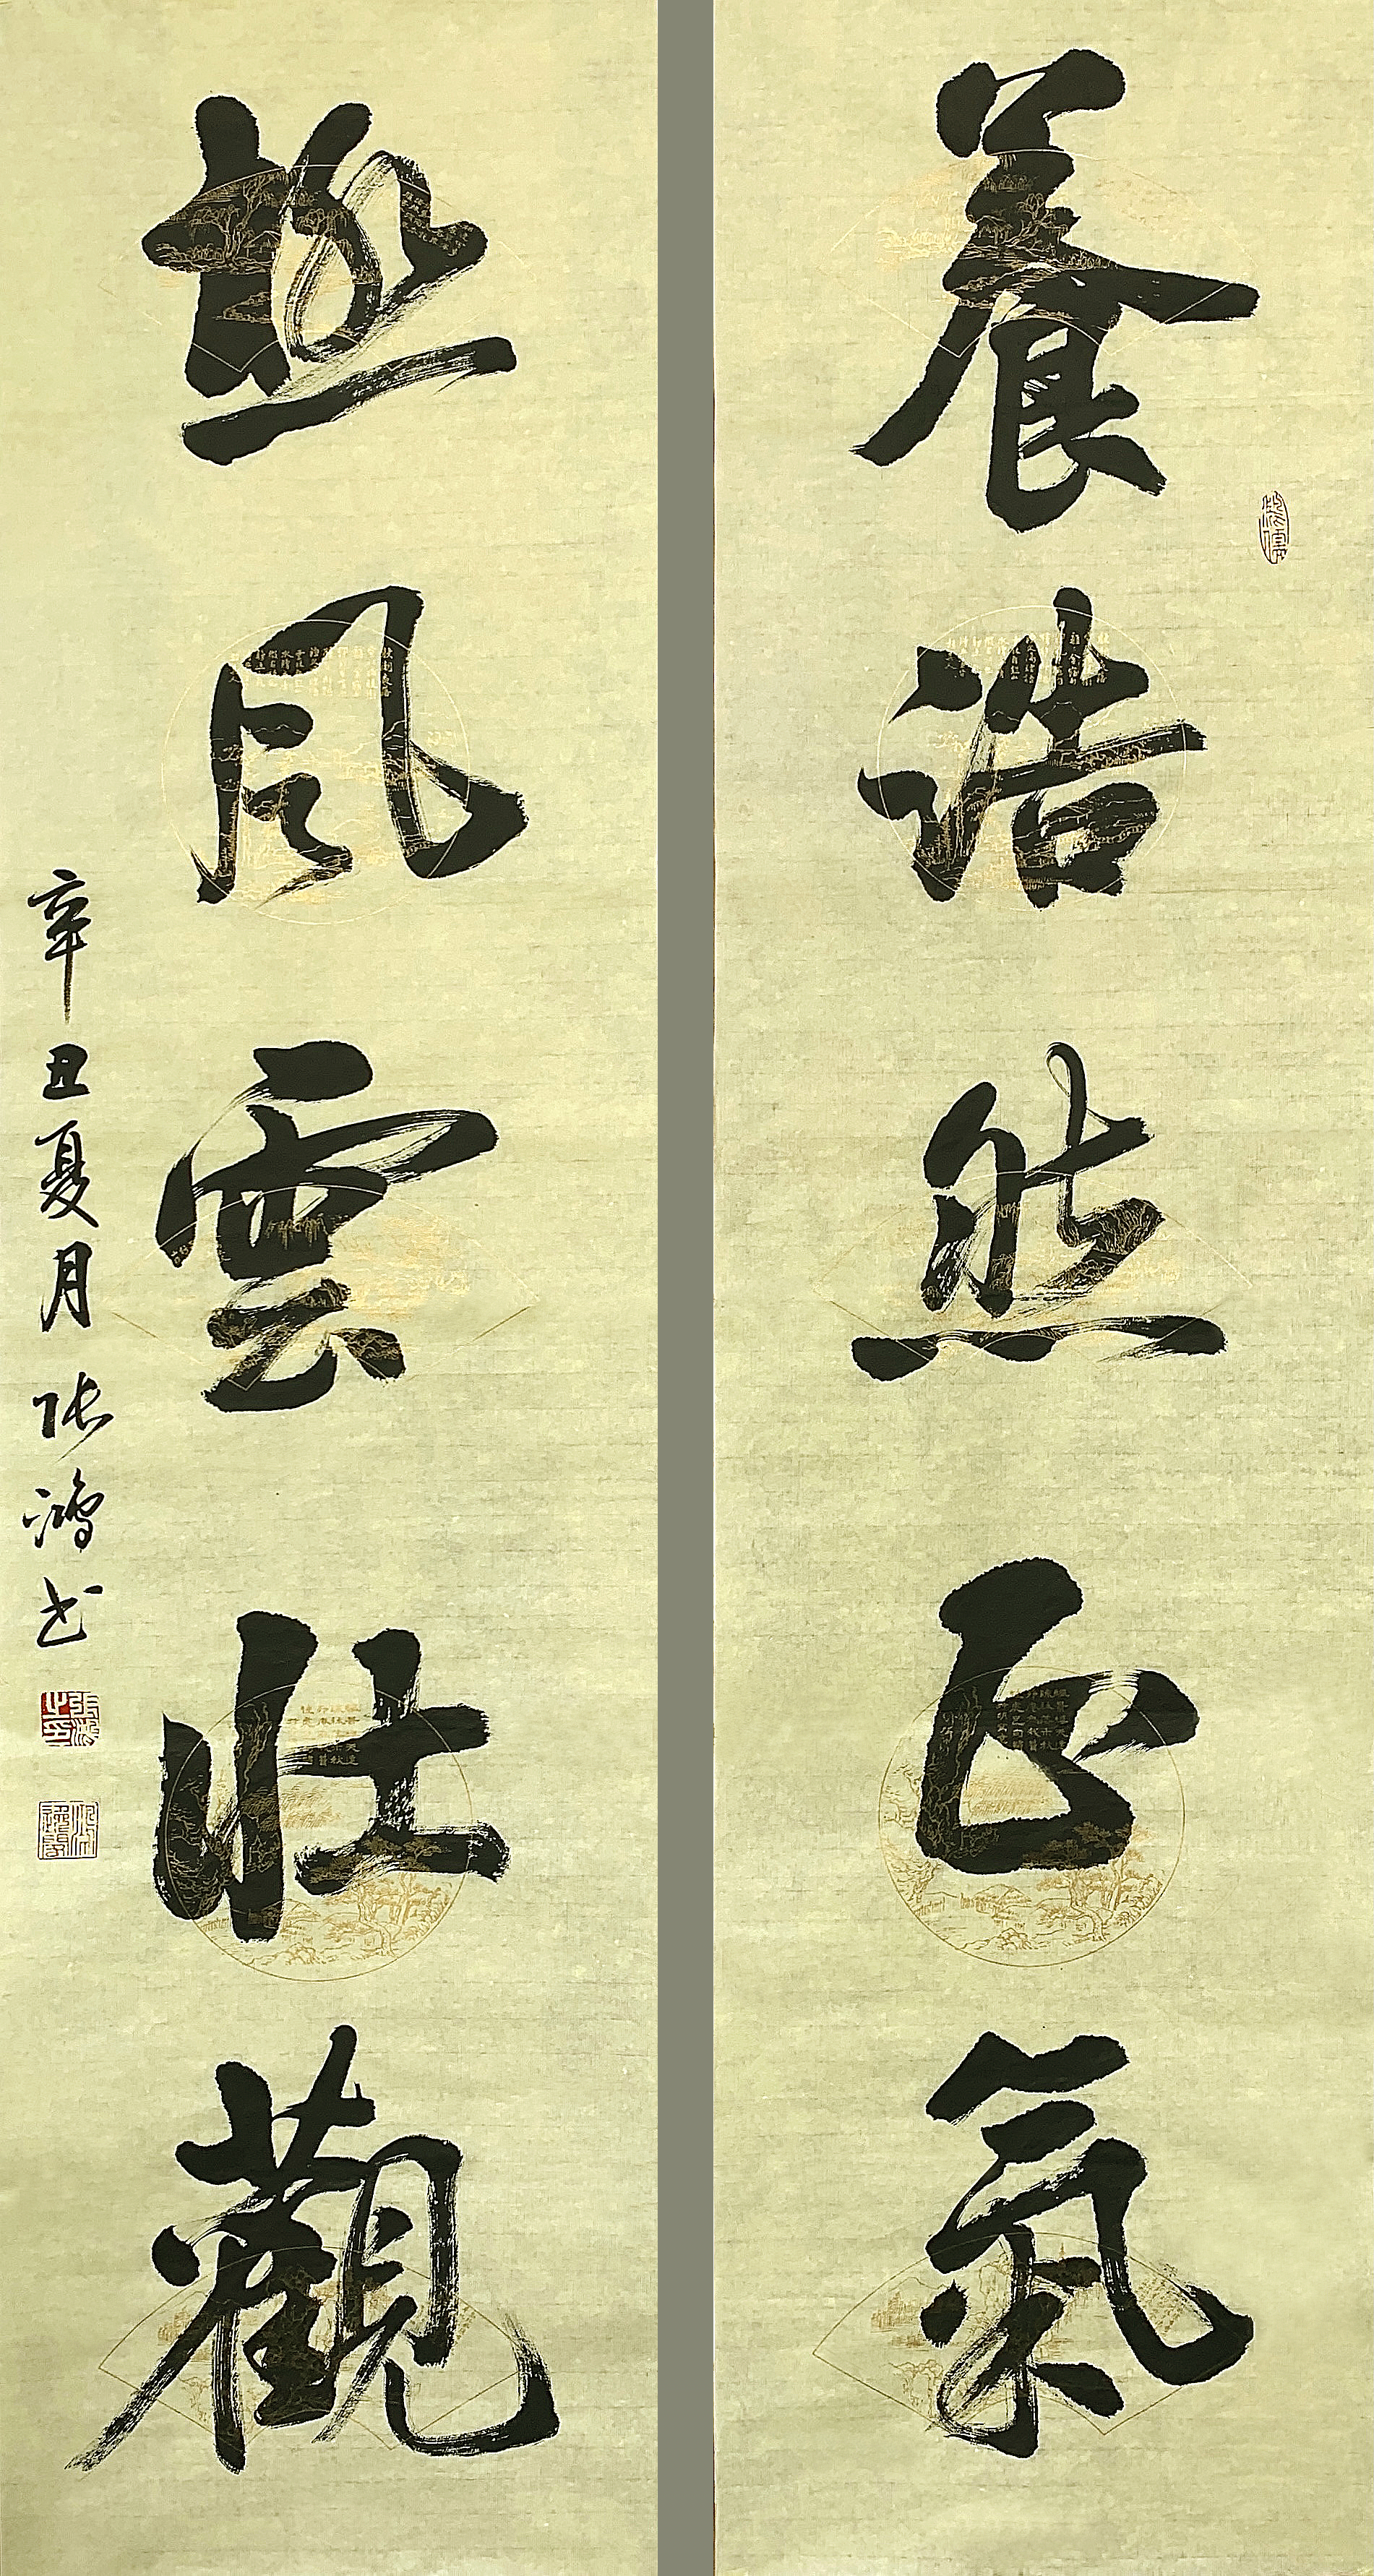 養浩然正氣
極風雲壯觀
辛丑夏月 张鴻书
張鴻之印